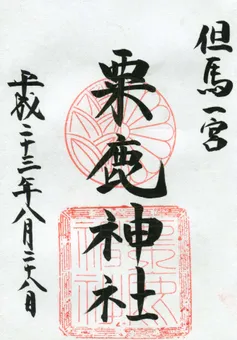 但馬一宮
粟鹿神社
平成二十三年八月二十八日